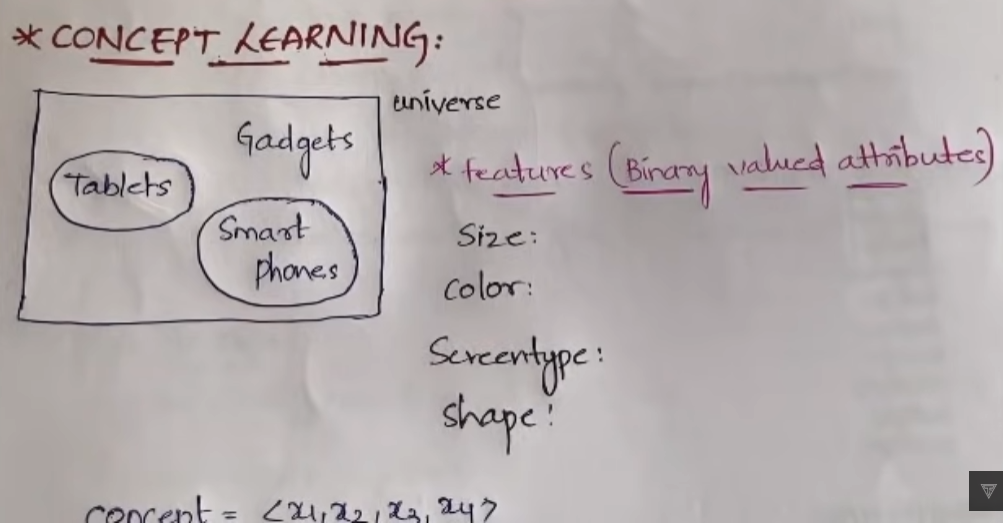 * CONCEPT LEARNING:
universe
Gadgets
Tablets
Smart
phones
* features (Binary valued attributes)
Size:
color:
Screentype:
shape:
concept = <x1, x2, x3, x4>